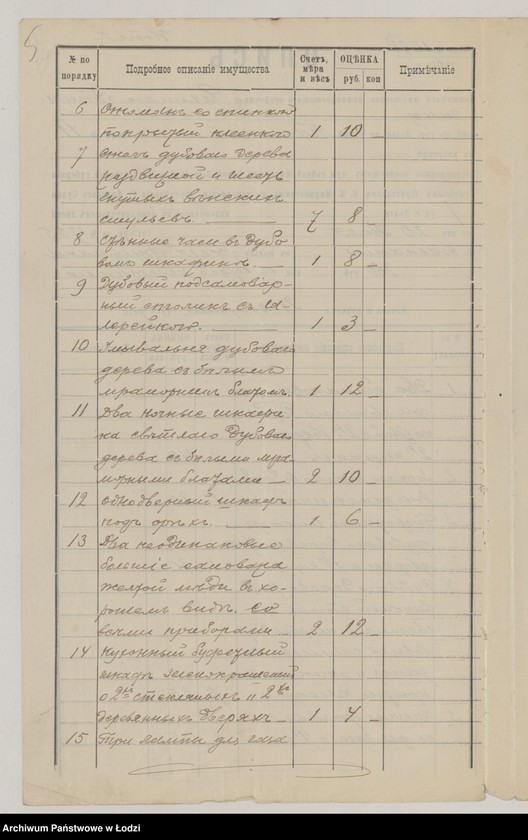 5
№ по порядку
Подробное описаніе имущества
Счетъ, мѣра и вѣсъ
ОЦѢНКА
руб. коп
Примѣчаніе
6 Оттоманъ со спинкой
покрытый клеенкою 1 10
7 Столъ дубоваго дерева
раздвижной и шесть
гнутыхъ вѣнскихъ
стульевъ. 7 8 –
8 Стѣнные часы въ дубо
вомъ шкафикѣ. 1 8 –
9 Дубовый подсамовар-
ный столикъ съ га-
лерейкою. 1 3 –
10 Умывальня дубоваго
дерева съ бѣлымъ
мраморнымъ блатомъ. 1 12 –
11 Два ночные шкафи
на свѣтлаго дубоваго
дерева съ бѣлыми мра
морными блатами 2 10 –
12 Однодверный шкафъ
подъ орѣхъ. 1 6 –
13 Два неодинаковые
большіе самовара
желтой мѣди въ хо-
рошемъ видѣ. со
всѣми приборами 2 12 –
14 Кухонный буфетный
шкафъ
о 2мя стеклянныхъ и 2хъ
деревянныхъ дверяхъ 1 4 –
15 Три лампы для газа
Archiwum Państwowe w Łodzi